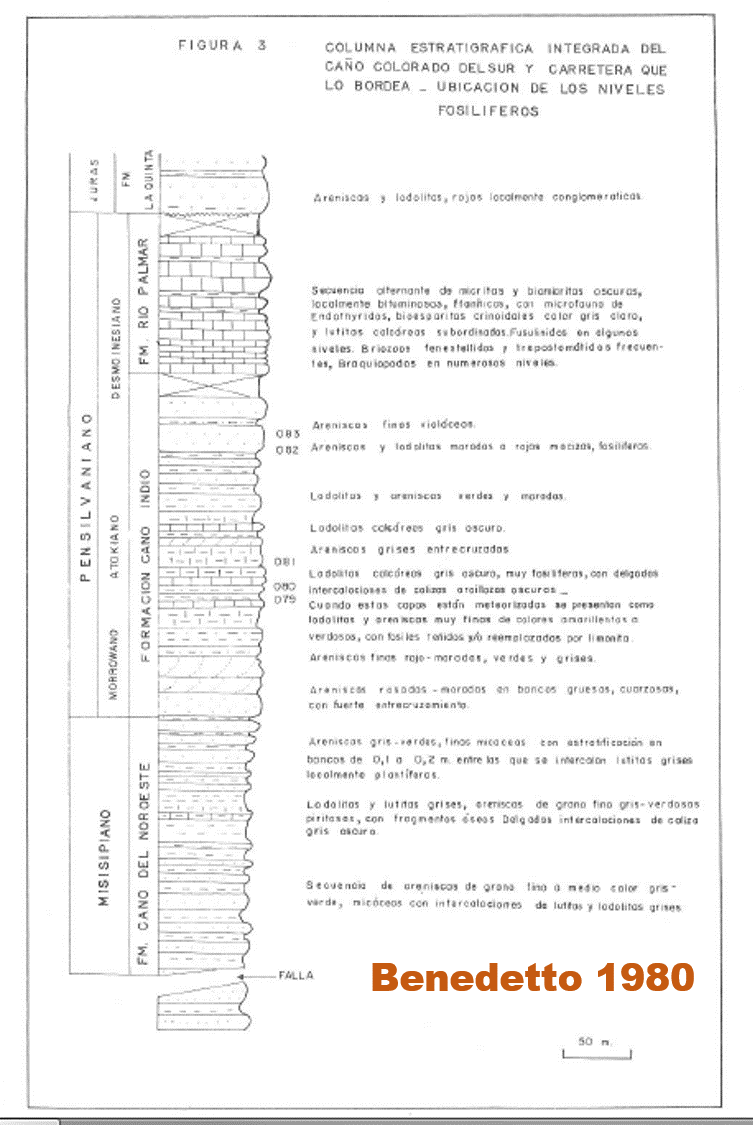 FIGURA 3
COLUMNA ESTRATIGRAFICA INTEGRADA DEL
CAÑO COLORADO DEL SUR Y CARRETERA QUE
LO BORDEA _ UBICACION DE LOS NIVELES
FOSILIFEROS
JURAS
FM.
LA QUINTA
Areniscas y lodolitas, rojas localmente conglomeraticas.
PENSILVANIANO
DESMOINESIANO
FM. RIO PALMAR
Secuencia alternante de micritas y biomicritas oscuras,
localmente bituminosas, ftaníticas, con microfauna de
Endothyridos, bioesparitas crinoidales color gris claro,
y lutitas calcáreas subordinadas. Fusulinidos en algunos
niveles. Briozoos fenestellidos y trepostomátidos frecuen-
tes, Braquiopodos en numerosos niveles.
ATOKIANO
MORROWANO
FORMACION CANO INDIO
083
Areniscas finas violáceas.
082
Areniscas y lodolitas moradas a rojas macizas, fosilíferas.
Lodolitas y areniscas verdes y moradas.
Lodolitas calcáreas gris oscuro.
Areniscas grises entrecruzadas
081
080
079
Lodolitas calcáreas gris oscuro, muy fosilíferas, con delgadas
intercalaciones de calizas arcillozas oscuras _
Cuando estas capas están meteorizadas se presentan como
lodolitas y areniscas muy finas de colores amarillentos a
verdosos, con fósiles teñidos y/o reemplazados por limonita.
Areniscas finas rojo-moradas, verdes y grises.
Areniscas rosadas - moradas en bancos gruesos, cuarzosas,
con fuerte entrecruzamiento.
MISISIPIANO
FM. CANO DEL NOROESTE
Areniscas gris-verdes, finas micaceas con estratificación en
bancos de 0,1 a 0,2 m. entre las que se intercalan lutitas grises
localmente plantíferas.
Lodolitas y lutitas grises, areniscas de grano fino gris-verdosas
piritosas, con fragmentos óseos Delgadas intercalaciones de caliza
gris oscura.
Secuencia de areniscas de grano fino a medio color gris-
verde, micáceas con intercalaciones de lutitas y lodolitas grises
FALLA
Benedetto 1980
50 m.